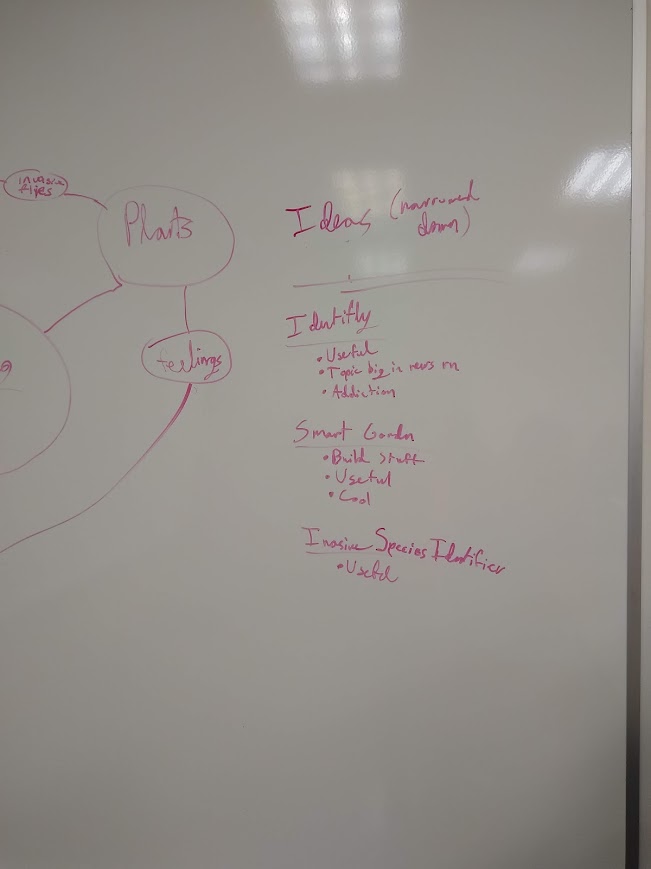 invasive
flies
Plants
feelings
Ideas (narrowed
down)
Identifly
• Useful
• Topic big in news rn
• Addiction
Smart Garden
• Build stuff
• Useful
• Cool
Invasive Species Identifier
• Useful